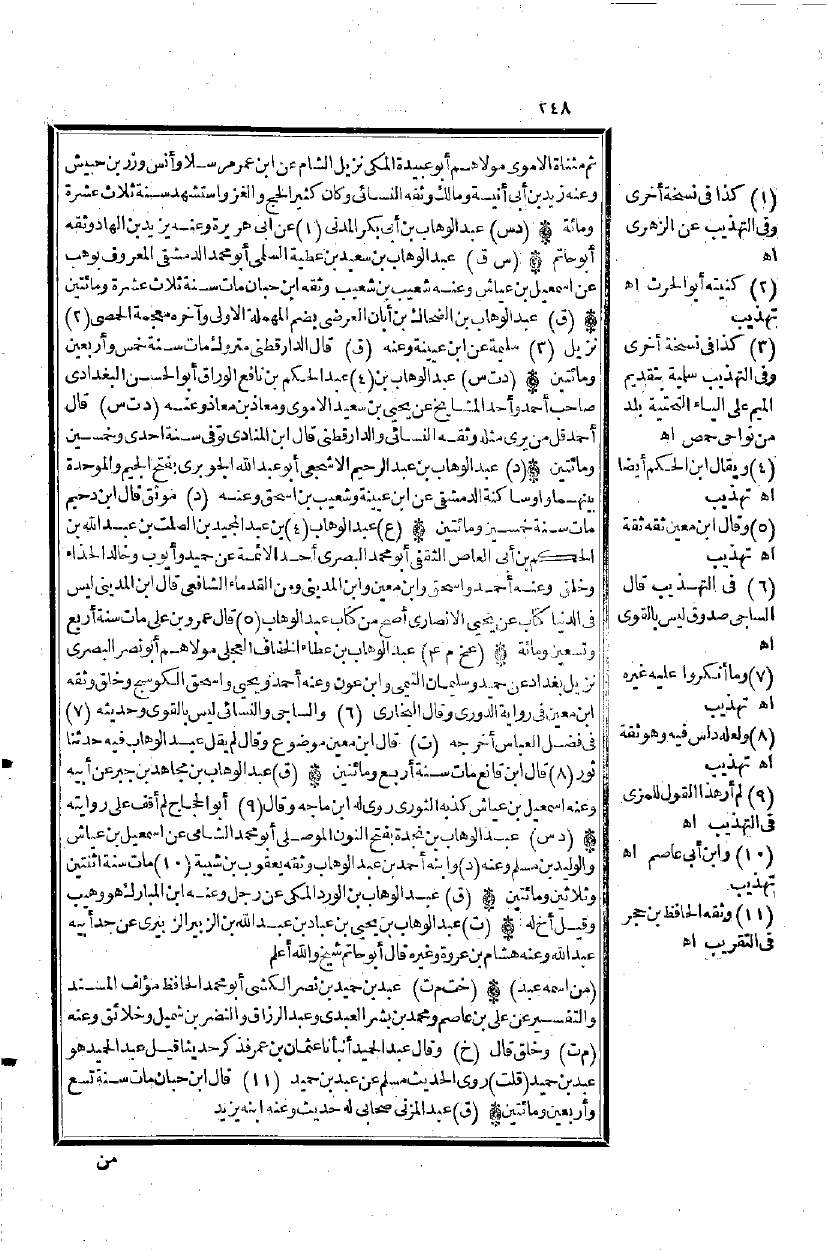 ٢٤٨
ثم مثناة الاموى مولاهم أبو عبيدة المكى نزيل الشام عن ابن عمر مرسلا وأنس وزر بن حبيش
وعنه زيد بن أبى أنيسة ومالك وثقه النسائى وكان كثير الحج والغز واستشهد سنة ثلاث عشرة
ومائة (دس) عبد الوهاب بن أبى بكر المدنى (١) عن ابى هريرة وعنه يزيد بن الهاد وثقه
أبو حاتم (س ق) عبد الوهاب بن سعيد بن عطية السلمى أبو محمد الدمشقى المعروف بوهب
عن اسمعيل بن عياش وعنه شعيب بن شعيب وثقه ابن حبان مات سنة ثلاث عشرة ومائتين
(ق) عبد الوهاب بن الضحاك بن أبان العرضى بضم المهملة الاولى وآخره معجمة الحمصى (٢)
نزيل (٣) سلمة عن ابن عيينة وعنه (ق) قال الدارقطنى متروك مات سنة خمس وأربعين
ومائتين (دت س) عبد الوهاب بن (٤) عبد الحكم بن نافع الوراق أبو الحسن البغدادى
صاحب أحمد وأحد المشايخ عن يحيى بن سعيد الاموى ومعاذ بن معاذ وعنه (دت س) قال
أحمد قل من يرى مثله وثقه النسائى والدارقطنى قال ابن المنادى توفى سنة احدى وخمسين
ومائتين (د) عبد الوهاب بن عبد الرحيم الاشجعى أبو عبد الله الجوبرى بفتح الجيم والموحدة
بينهما واو ساكنة الدمشقى عن ابن عيينة وشعيب بن اسحق وعنه (د) موثق قال ابن دحيم
مات سنة خمسين ومائتين (ع) عبد الوهاب (٤) بن عبد المجيد بن الصلت بن عبد الله بن
الحكم بن أبى العاص الثقفى أبو محمد البصرى أحد الائمة عن حميد وأيوب وخالد الحذاء
وخلق وعنه أحمد واسحق وابن معين وابن المدينى ومن القدماء الشافعى قال ابن المدينى ليس
فى الدنيا كتاب عن يحيى الانصارى أصح من كتاب عبد الوهاب (٥) قال عمرو بن على مات سنة أربع
وتسعين ومائة (عخ م ٤) عبد الوهاب بن عطاء الخفاف العجلى مولاهم أبو نصر البصرى
نزيل بغداد عن حميد وسليمان التيمى وابن عون وعنه أحمد ويحيى واسحق الكوسج وخلق وثقه
ابن معين فى رواية الدورى وقال البخارى (٦) والساجى والنسائى ليس بالقوى وحديثه (٧)
فى فضل العباس أخرجه (ت) قال ابن معين موضوع وقال لم يقل عبد الوهاب فيه حدثنا
ثور (٨) قال ابن قانع مات سنة أربع ومائتين (ق) عبد الوهاب بن مجاهد بن جبر عن أبيه
وعنه اسمعيل بن عياش كذبه الثورى روى له ابن ماجه وقال (٩) أبو الحجاج لم أقف على روايته
(دس) عبد الوهاب بن نجدة بفتح النون الموصلى أبو محمد الشامى عن اسمعيل بن عياش
والوليد بن مسلم وعنه (د) وابنه أحمد بن عبد الوهاب وثقه يعقوب بن شيبة (١٠) مات سنة اثنتين
وثلاثين ومائتين (ق) عبد الوهاب بن الورد المكى عن رجل وعنه ابن المبارك هو وهيب
وقيل أخ له (ت) عبد الوهاب بن يحيى بن عباد بن عبد الله بن الزبير الزبيرى عن جد أبيه
عبد الله وعنه هشام بن عروة وغيره قال أبو حاتم شيخ والله أعلم
(من اسمه عبد) (خت م ت) عبد بن حميد بن نصر الكشى أبو محمد الحافظ مؤلف المسند
والتفسير عن على بن عاصم ومحمد بن بشر العبدى وعبد الرزاق والنضر بن شميل وخلائق وعنه
(م ت) وخلق قال (خ) وقال عبد الحميد أنبأنا عثمان بن عمر فذكر حديثا قيل عبد الحميد هو
عبد بن حميد (قلت) روى الحديث مسلم عن عبد بن حميد (١١) قال ابن حبان مات سنة تسع
وأربعين ومائتين (ق) عبد المزنى صحابى له حديث وعنه ابنه يزيد
من
(١) كذا فى نسخة أخرى
وفى التهذيب عن الزهرى
اه
(٢) كنيته أبو الحرث اه
تهذيب
(٣) كذا فى نسخة أخرى
وفى التهذيب سلمية بتقديم
الميم على الياء التحتية بلد
من نواحى حمص اه
(٤) ويقال ابن الحكم أيضا
اه تهذيب
(٥) وقال ابن معين ثقه ثقة
اه تهذيب
(٦) فى التهذيب قال
الساجى صدوق ليس بالقوى
اه
(٧) وما أنكروا عليه غيره
اه تهذيب
(٨) ولعله دلس فيه وهو ثقة
اه تهذيب
(٩) لم أر هذا القول للمزى
فى التهذيب اه
(١٠) وابن أبى عاصم اه
تهذيب
(١١) وثقه الحافظ بن حجر
فى التقريب اه